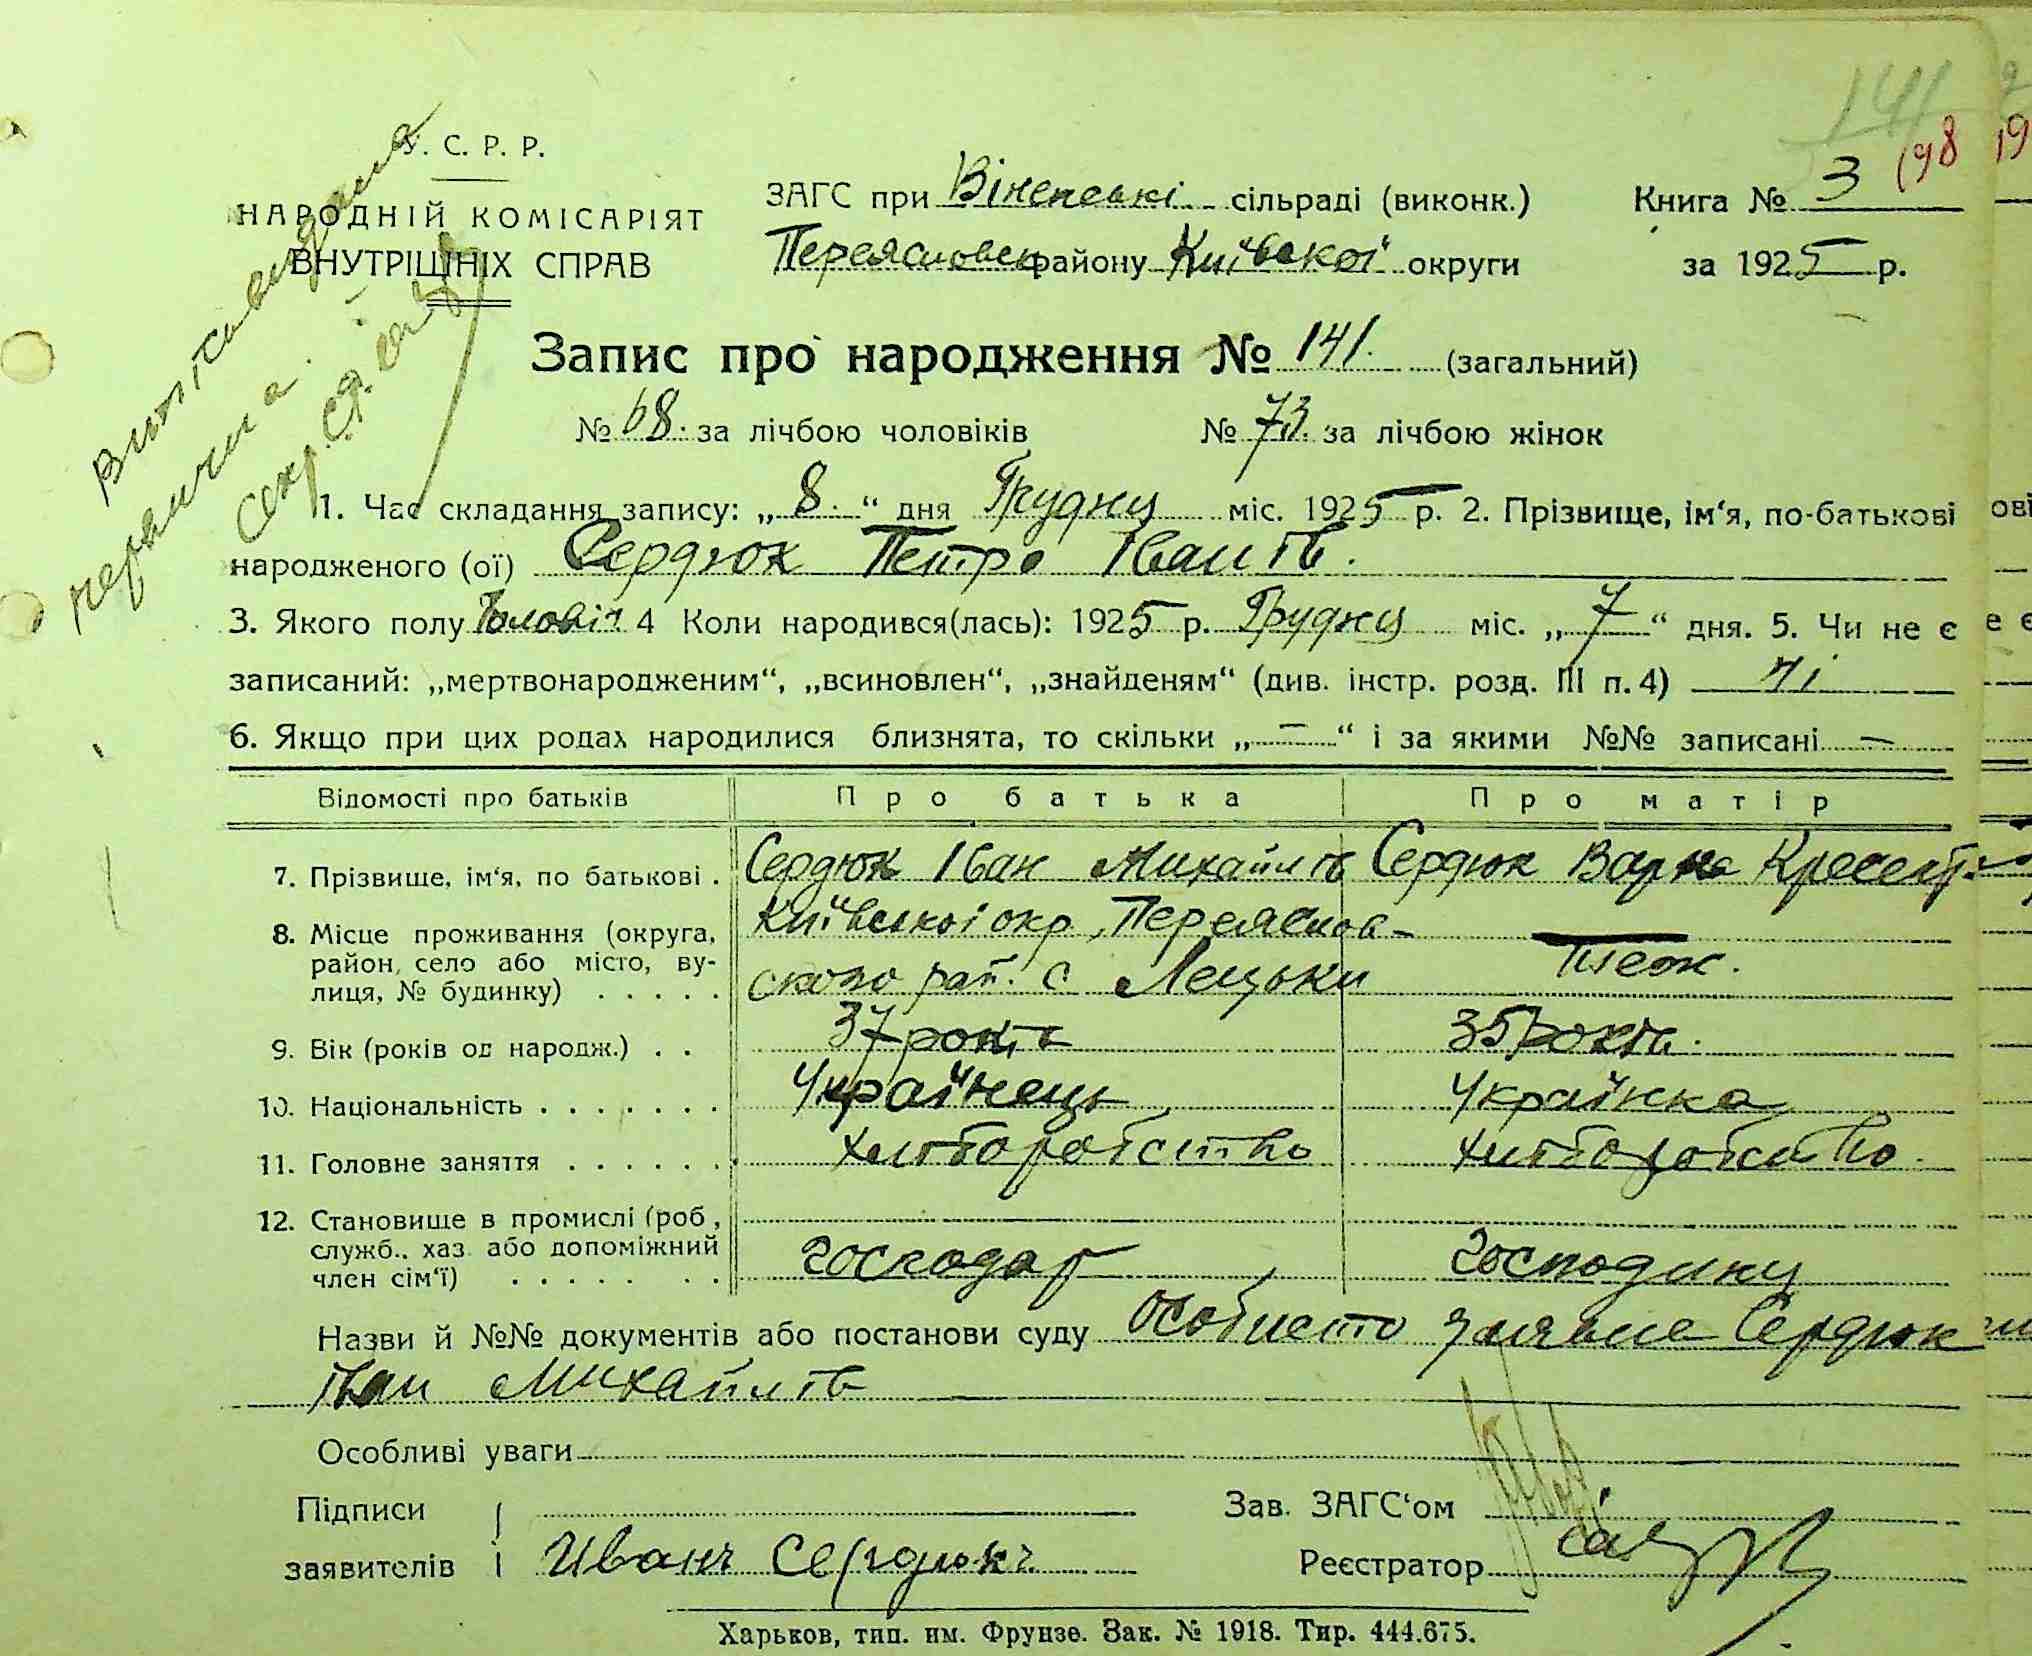 141
198
У. С. Р. Р.
НАРОДНІЙ КОМІСАРІЯТ
ВНУТРІШНІХ СПРАВ
ЗАГС при Віненські сільраді (виконк.)
Переясловск району Київскої округи
Книга № 3
за 1925 р.
Запис про народження № 141. (загальний)
№ 68. за лічбою чоловіків № 73. за лічбою жінок
1. Час складання запису: „ 8. “ дня Грудня міс. 1925 р. 2. Прізвище, ім‘я, по-батькові
народженого (ої) Сердюк Петро Іванів.
3. Якого полу Чоловіч 4 Коли народився(лась): 1925 р. Грудня міс. „ 7 “ дня. 5. Чи не є
записаний: „мертвонародженим“, „всиновлен“, „знайденям“ (див. інстр. розд. III п. 4) ні
6. Якщо при цих родах народилися близнята, то скільки „ — “ і за якими №№ записані —
Відомості про батьків Про батька Про матір
7. Прізвище, ім‘я, по батькові . Сердюк Іван Михайлів Сердюк Варка
8. Місце проживання (округа, район, село або місто, вулиця, № будинку) . . . . .
Київської окр, Переяслов-
ского рай. с Лецьки
Теж.
9. Вік (років од народж.) . . 37 років 35 років.
10. Національність . . . . . . . Українець Українка
11. Головне заняття . . . . . . . Хліборобство Хліборобство
12. Становище в промислі (роб, служб., хаз. або допоміжний член сім‘ї) . . . . . . .
господар господиня
Назви й №№ документів або постанови суду Особисто заявив Сердюк
Іван Михайлів
Особливі уваги
Підписи
заявителів Иванъ Сердюкъ
Зав. ЗАГС‘ом
Реєстратор
Харьков, тип. им. Фрунзе. Зак. № 1918. Тир. 444.675.